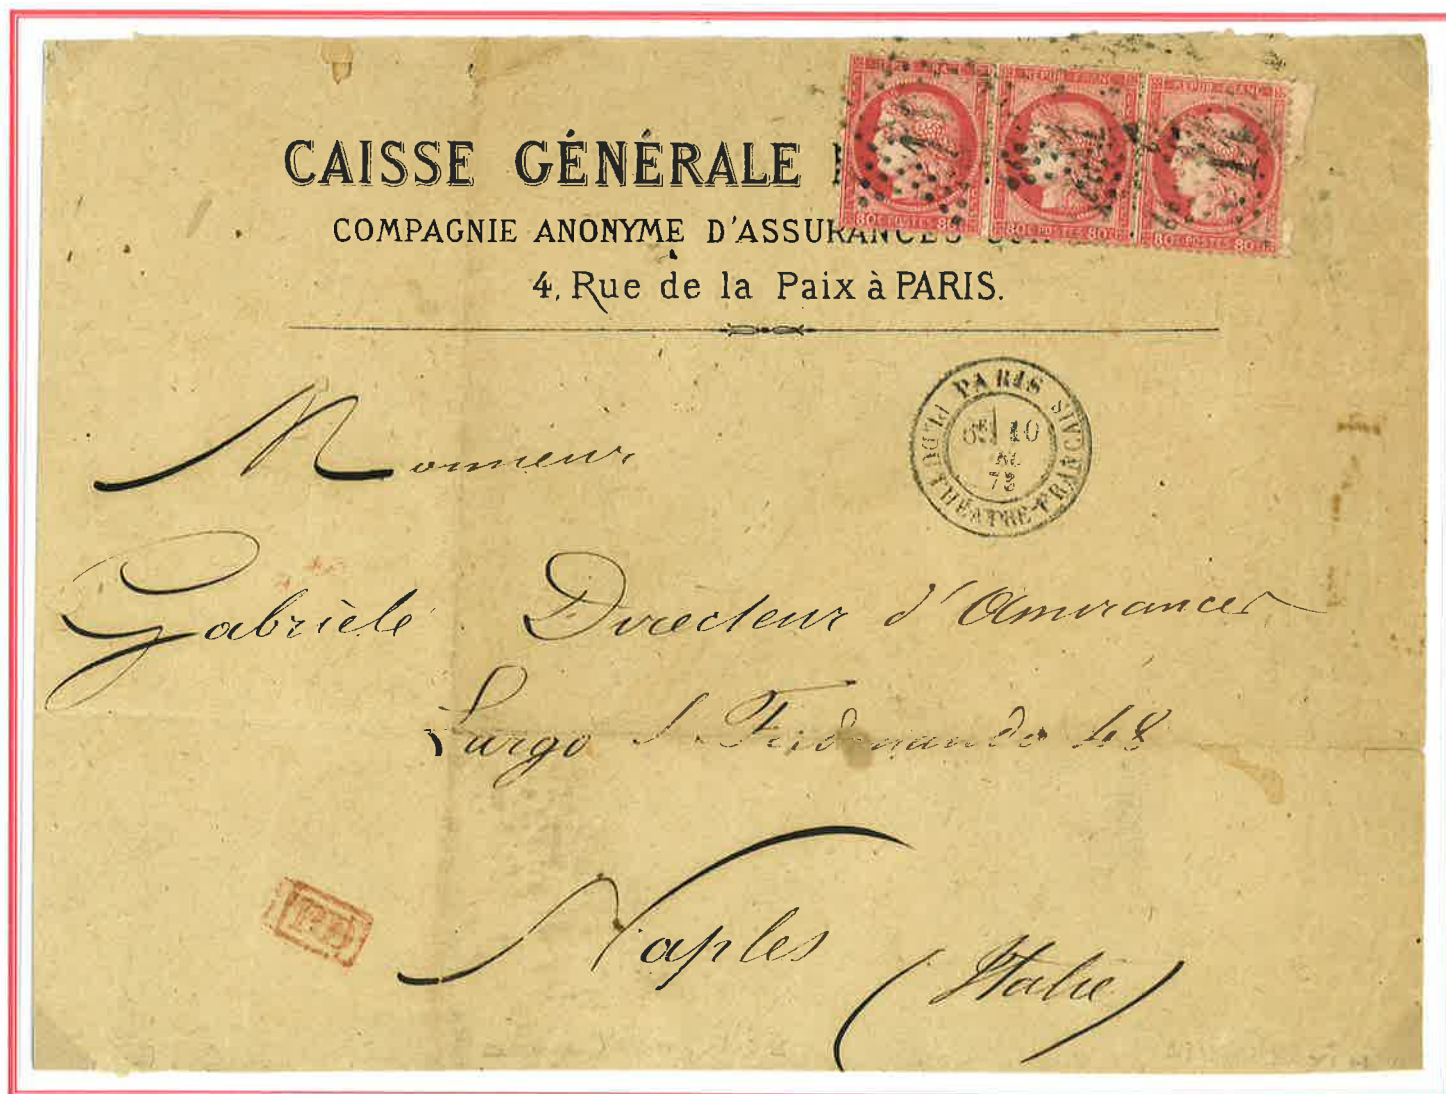 CAISSE GÉNÉRALE
COMPAGNIE ANONYME D'ASSURANCES
4, Rue de la Paix à PARIS.
REPUB. FRANC.
REPUB. FRANC.
REPUB. FRANC.
80 C. POSTES 80 C.
80 C. POSTES 80 C.
80 C. POSTES 80 C.
PARIS
6E 10
73
PL. DU THÉATRE-FRANCAIS
Monsieur
Gabrièle Directeur d'Assurances
Largo S. Ferdinando 48
Naples
(Italie)